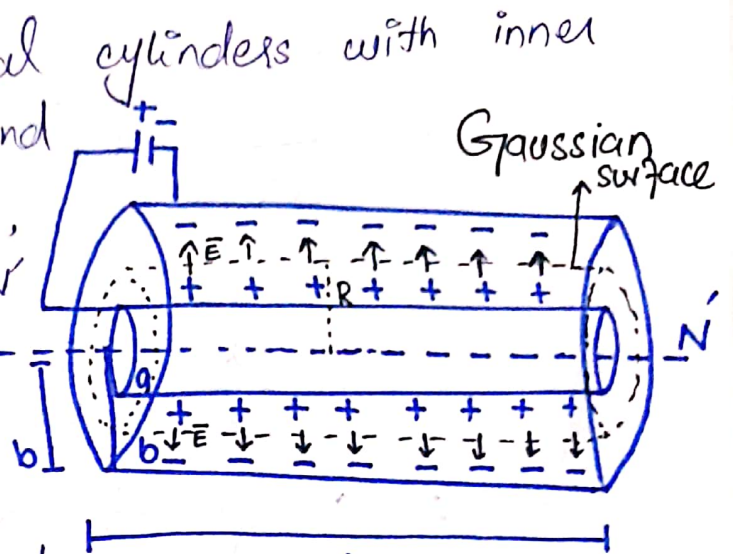 al cylinders with inner
nd
+ -
Gaussian
surface
r
- - - - - -
E
+ + + R + + + +
N'
a
+ + + + + + + +
b b E
- - - - - - - -